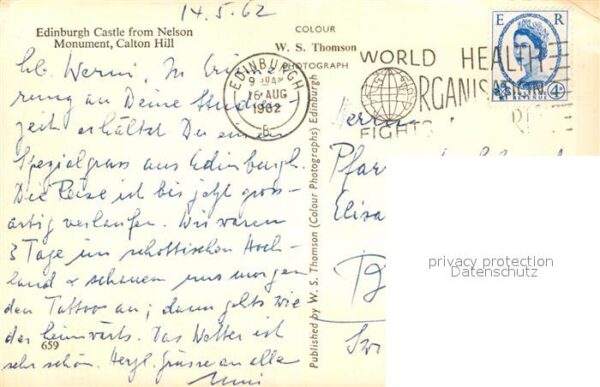 14.5.62
Edinburgh Castle from Nelson
Monument, Calton Hill
COLOUR
W. S. Thomson
PHOTOGRAPH
E R
4D
EDINBURGH
9 AM
16 AUG
1962
B
WORLD HEALTH
ORGANISATION
FIGHTS
lb. Werni, In Erinne-
rung an Deine Studien-
zeit erhältst Du einen
Spezialgruss aus Edinburgh.
Die Reise ist bis jetzt gross-
artig verlaufen. Wir waren
3 Tage im schottischen Hoch-
land & schauen uns morgen
den Tattoo an; dann gehts wie
der heimwärts. Das Wetter ist
sehr schön. Herzl. Grüsse an alle
659
Published by W. S. Thomson (Colour Photographs) Edinburgh
Herrn
Pfarr
Elisa
privacy protection
Datenschutz